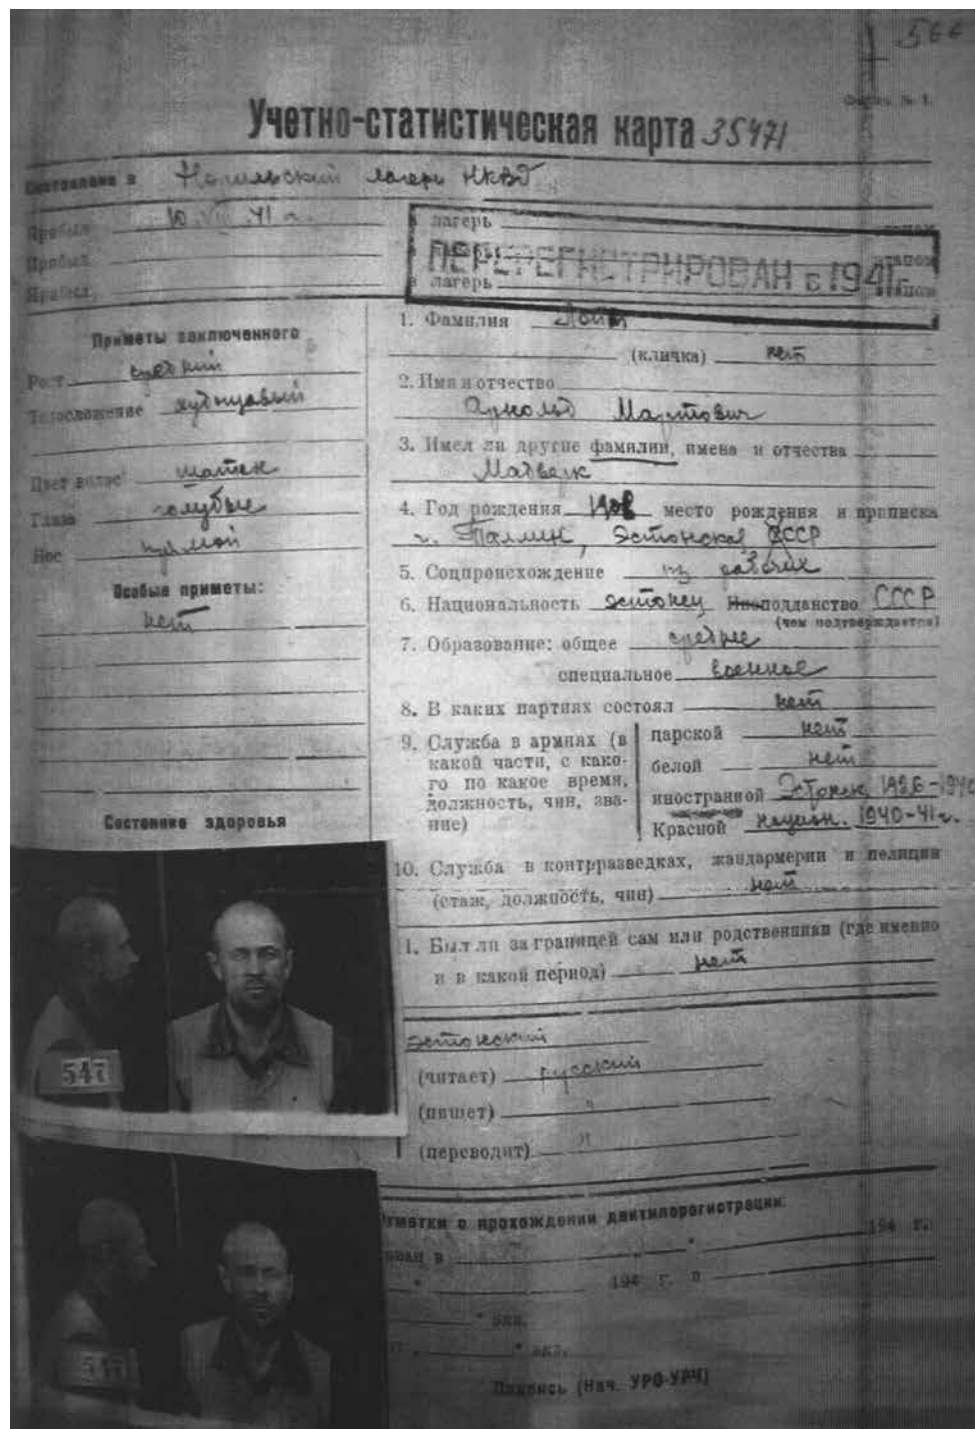 566
Форма № 1.
Учетно-статистическая карта 35471
Составлена в Норильский лагерь НКВД
Прибыл 10 VIII 41 г. в лагерь этапом
Прибыл в лагерь этапом
Прибыл в лагерь этапом
ПЕРЕРЕГИСТРИРОВАН в 1941г.
Приметы заключенного
Рост средний
Телосложение худощавый
Цвет волос шатен
Глаза голубые
Нос прямой
Особые приметы:
нет
Состояние здоровья
1. Фамилия
(кличка) нет
2. Имя и отчество
Арнольд Мартович
3. Имел ли другие фамилии, имена и отчества
Мадверк
4. Год рождения место рождения и прописка
г. Таллин, Эстонская ССР
5. Соцпроисхождение из рабочих
6. Национальность эстонец Иноподданство СССР
(чем подтверждается)
7. Образование: общее среднее
специальное военное
8. В каких партиях состоял нет
9. Служба в армиях (в
какой части, с како-
го по какое время,
должность, чин, зва-
ние)
царской нет
белой нет
иностранной Эстонск. 1926-1940
Красной национ. 1940-41 г.
10. Служба в контрразведках, жандармерии и полиции
(стаж, должность, чин) нет
1. Был ли за границей сам или родственники (где именно
и в какой период) нет
эстонский
(читает) русский
(пишет) "
(переводит) "
547
Отметки о прохождении дактилорегистрации:
ован в " 194 г.
" 194 г. в
" экз.
" экз.
547
Подпись (Нач. УРО-УРЧ)